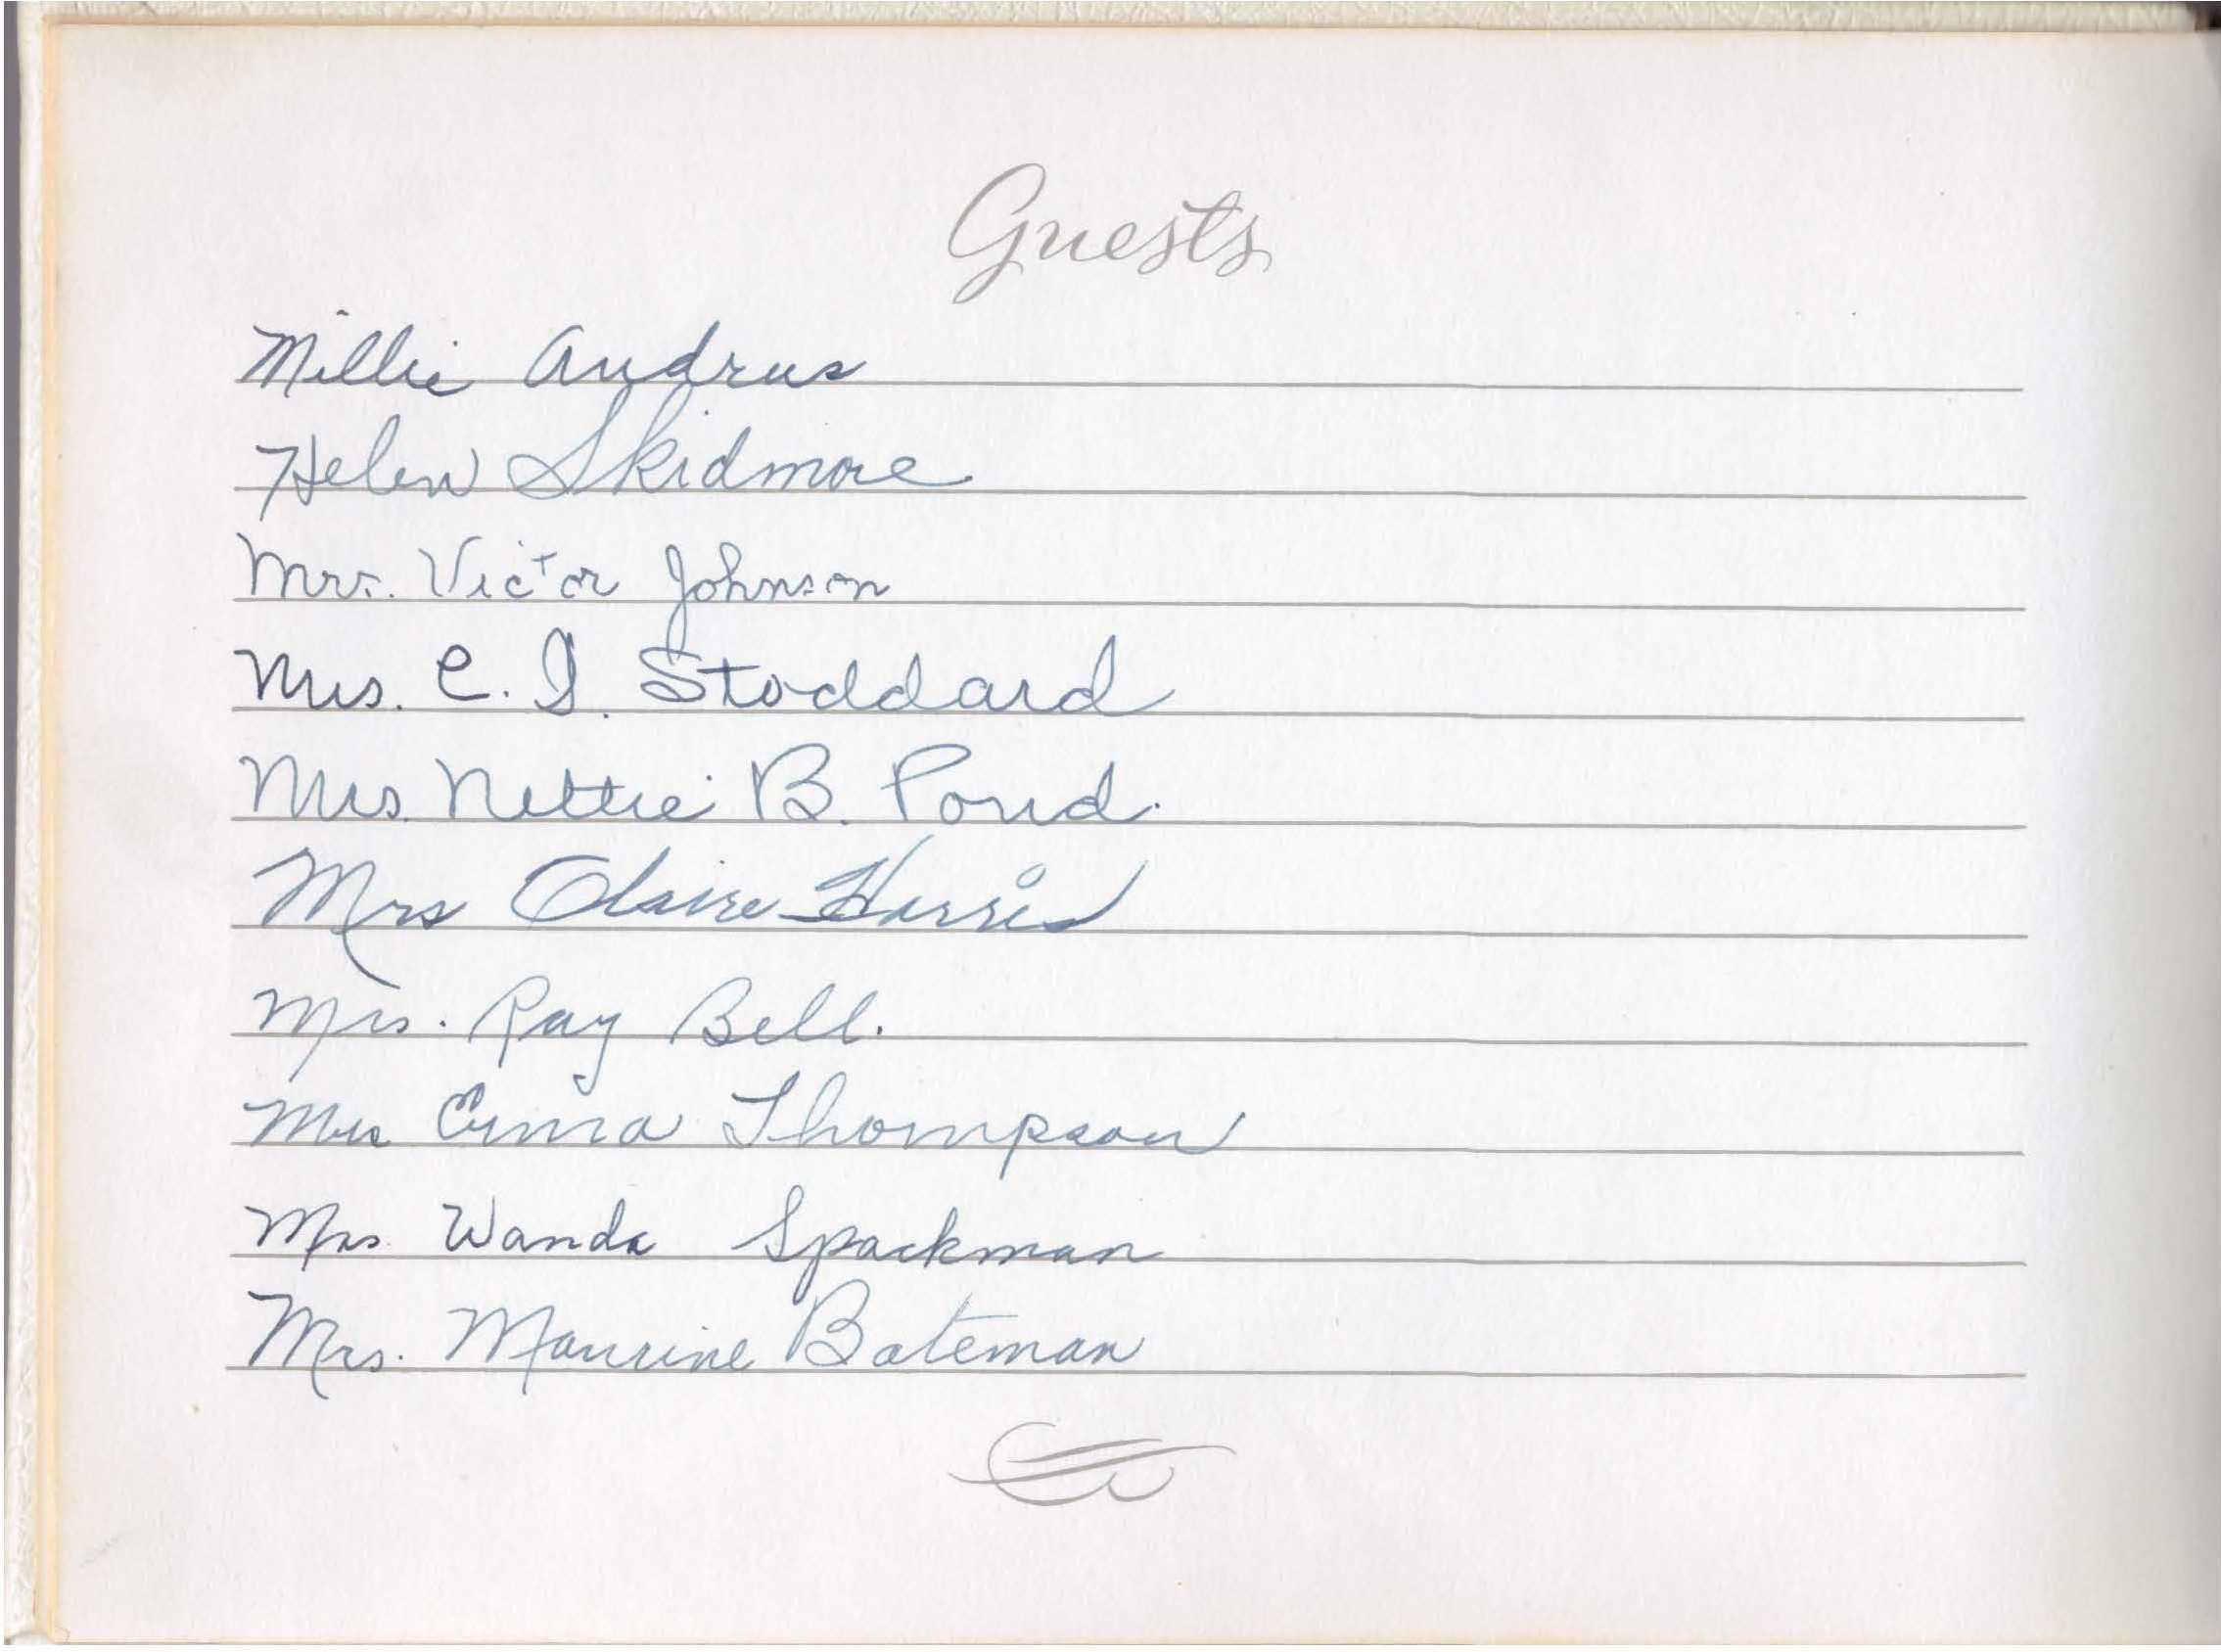 Guests
Millie Andrus
Helen Skidmore
Mrs. Victor Johnson
Mrs. C. I. Stoddard
Mrs. Nettie B. Pond.
Mrs Claire Harris
Mrs. Ray Bell.
Mrs Erma Thompson
Mrs Wanda Spackman
Mrs. Maurine Bateman